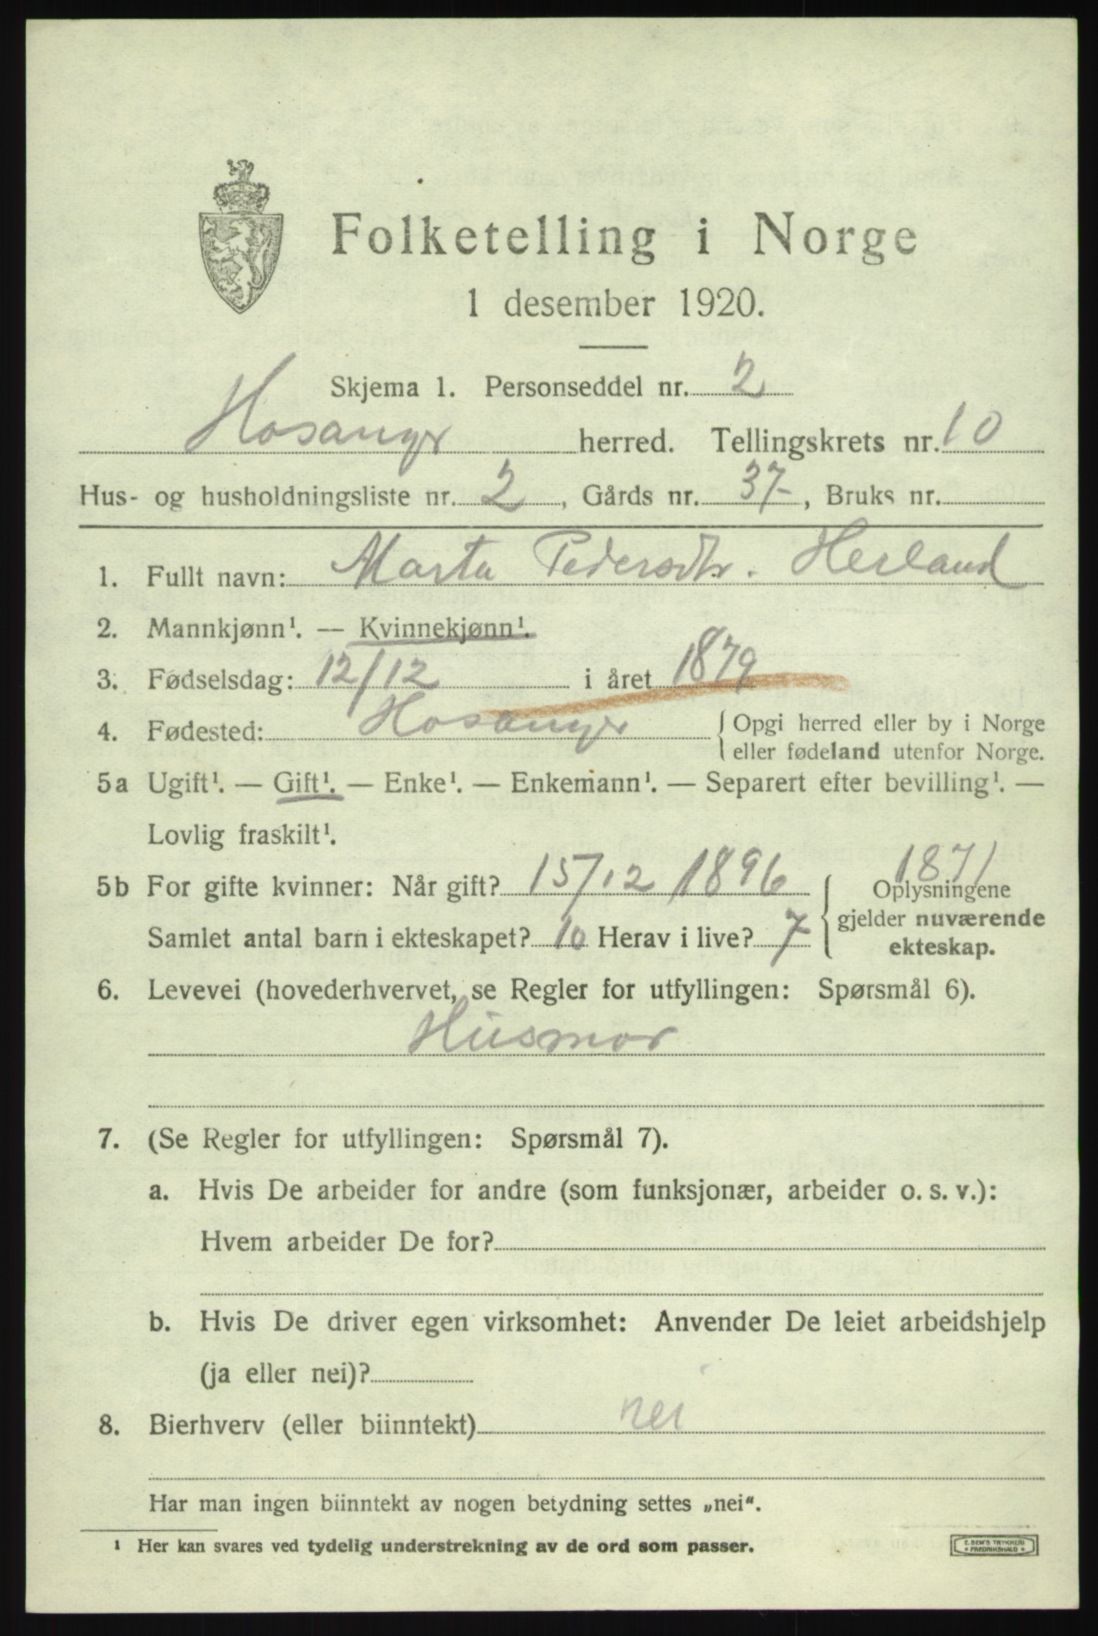 Folketelling i Norge
1 desember 1920.
Skjema 1. Personseddel nr. 2
Hosanger herred. Tellingskrets nr. 10
Hus- og husholdningsliste nr. 2, Gårds nr. 37-, Bruks nr.
1. Fullt navn: Marta Pedersdtr. Herland
2. Mannkjønn¹. — Kvinnekjønn¹.
3. Fødselsdag: 12/12 i året 1879
4. Fødested: Hosanger { Opgi herred eller by i Norge
eller fødeland utenfor Norge.
5a Ugift¹. — Gift¹. — Enke¹. — Enkemann¹. — Separert efter bevilling¹. —
Lovlig fraskilt¹.
1871
5b For gifte kvinner: Når gift? 15/12 1896 { Oplysningene
gjelder nuværende
Samlet antal barn i ekteskapet? 10 Herav i live? 7
ekteskap.
6. Levevei (hovederhvervet, se Regler for utfyllingen: Spørsmål 6).
Husmor
7. (Se Regler for utfyllingen: Spørsmål 7).
a. Hvis De arbeider for andre (som funksjonær, arbeider o. s. v.):
Hvem arbeider De for?
b. Hvis De driver egen virksomhet: Anvender De leiet arbeidshjelp
(ja eller nei)?
8. Bierhverv (eller biinntekt) nei
Har man ingen biinntekt av nogen betydning settes „nei".
¹ Her kan svares ved tydelig understrekning av de ord som passer.